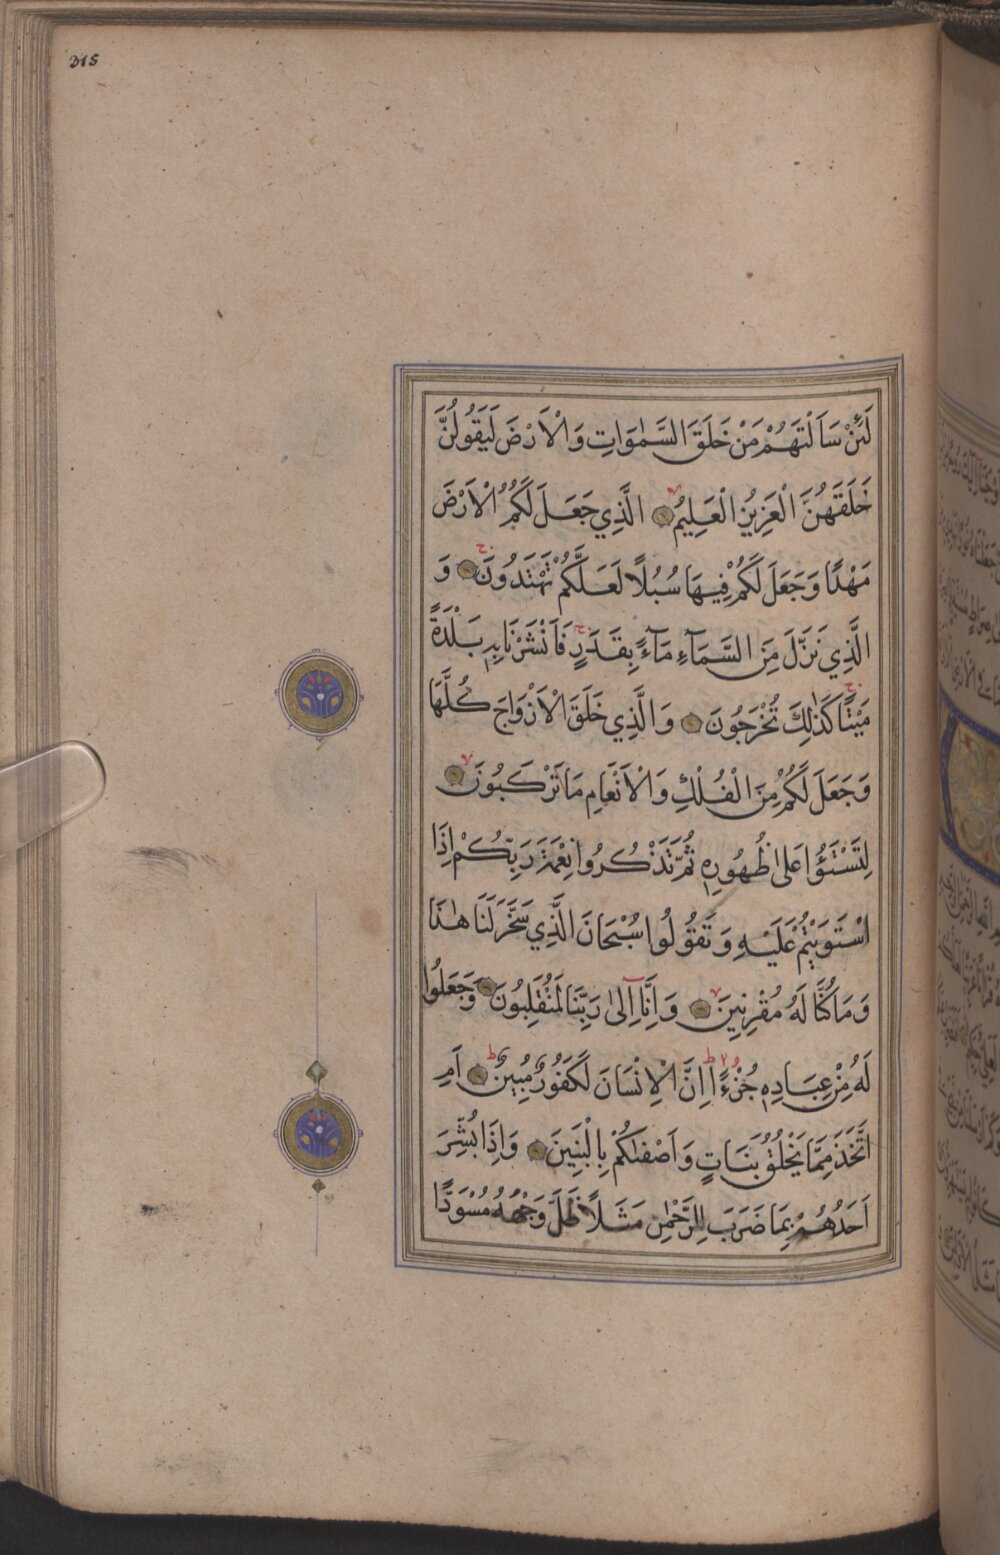 315
لَئِنْ سَاَلْتَهُمْ مَنْ خَلَقَ السَّمٰوَاتِ وَالْاَرْضَ لَيَقُولُنَّ
خَلَقَهُنَّ الْعَزِيزُ الْعَلِيمُ الَّذِي جَعَلَ لَكُمُ الْاَرْضَ
مَهْدًا وَجَعَلَ لَكُمْ فِيهَا سُبُلًا لَعَلَّكُمْ تَهْتَدُونَ وَ
الَّذِي نَزَّلَ مِنَ السَّمَآءِ مَآءً بِقَدَرٍ فَاَنْشَرْنَا بِهِ بَلْدَةً
مَيْتًا كَذٰلِكَ تُخْرَجُونَ وَالَّذِي خَلَقَ الْاَزْوَاجَ كُلَّهَا
وَجَعَلَ لَكُمْ مِنَ الْفُلْكِ وَالْاَنْعَامِ مَا تَرْكَبُونَ
لِتَسْتَوُا عَلٰى ظُهُورِهِ ثُمَّ تَذْكُرُوا نِعْمَةَ رَبِّكُمْ اِذَا
اسْتَوَيْتُمْ عَلَيْهِ وَتَقُولُوا سُبْحَانَ الَّذِي سَخَّرَ لَنَا هٰذَا
وَمَا كُنَّا لَهُ مُقْرِنِينَ وَاِنَّا اِلٰى رَبِّنَا لَمُنْقَلِبُونَ وَجَعَلُوا
لَهُ مِنْ عِبَادِهِ جُزْءًا اِنَّ الْاِنْسَانَ لَكَفُورٌ مُبِينٌ اَمِ
اتَّخَذَ مِمَّا يَخْلُقُ بَنَاتٍ وَاَصْفٰىكُمْ بِالْبَنِينَ وَاِذَا بُشِّرَ
اَحَدُهُمْ بِمَا ضَرَبَ لِلرَّحْمٰنِ مَثَلًا ظَلَّ وَجْهُهُ مُسْوَدًّا